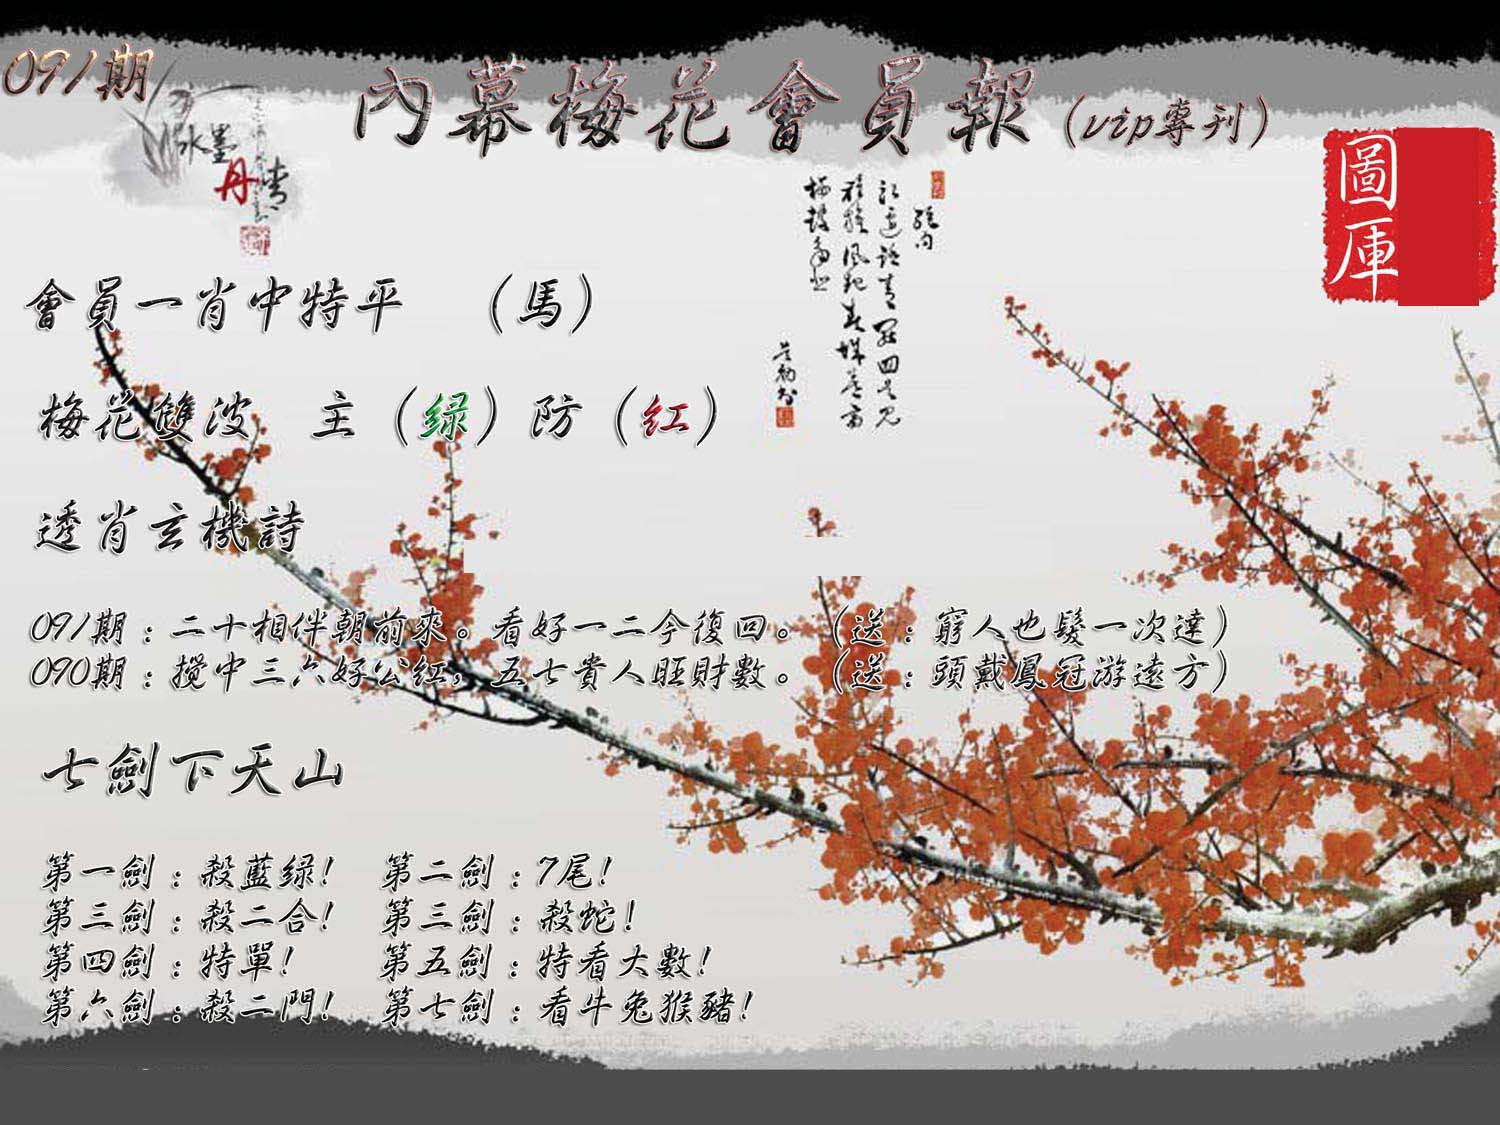 091期
內幕梅花會員報（vip專刊）
水墨
丹青
圖庫
會員一肖中特平　（馬）
梅花雙波　主（绿）防（红）
透肖玄機詩
091期：二十相伴朝前來。看好一二今復回。（送：窮人也髮一次達）
090期：攪中三六好公紅，五七貴人旺財數。（送：頭戴鳳冠游遠方）
七劍下天山
第一劍：殺藍绿!　第二劍：7尾!
第三劍：殺二合!　第三劍：殺蛇!
第四劍：特單!　第五劍：特看大數!
第六劍：殺二門!　第七劍：看牛兔猴豬!